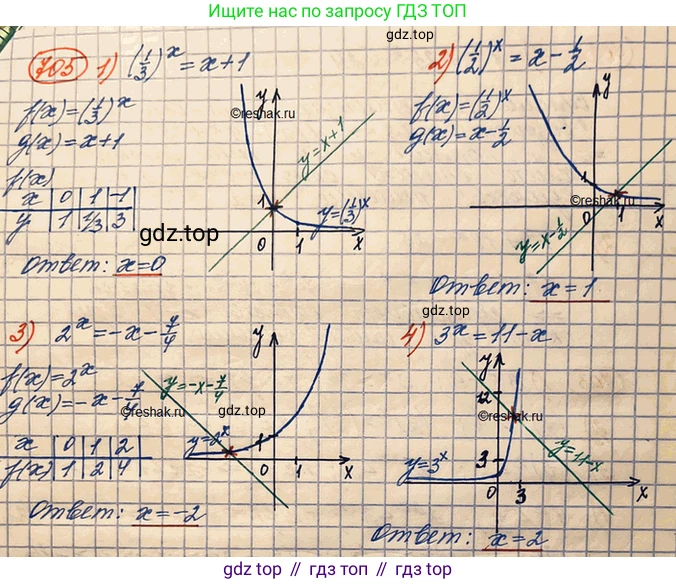 Ищите по запросу ГДЗ ТОП
gdz.top
705 1) (1/3)^x = x+1
f(x)=(1/3)^x
g(x)=x+1
©reshak.ru
y
y=x+1
f(x)
x 0 1 -1
y 1 1/3 3
1
y=(1/3)^x
gdz.top
0 1 x
Ответ: x=0
2) (1/2)^x = x - 1/2
f(x)=(1/2)^x
g(x)=x-1/2
y
1
©reshak.ru
0 1 x
y=x-1/2
Ответ: x=1
3) 2^x = -x - 7/4
f(x)=2^x
g(x)=-x-7/4
y
y=-x-7/4
gdz.top
©reshak.ru
x 0 1 2
f(x) 1 2 4
y=2^x
1
0 1 x
Ответ: x=-2
4) 3^x=11-x
y
12
gdz.top
©reshak.ru
y=11-x
y=3^x
3
0 3 x
Ответ: x=2
gdz.top // gdz.top // gdz.top